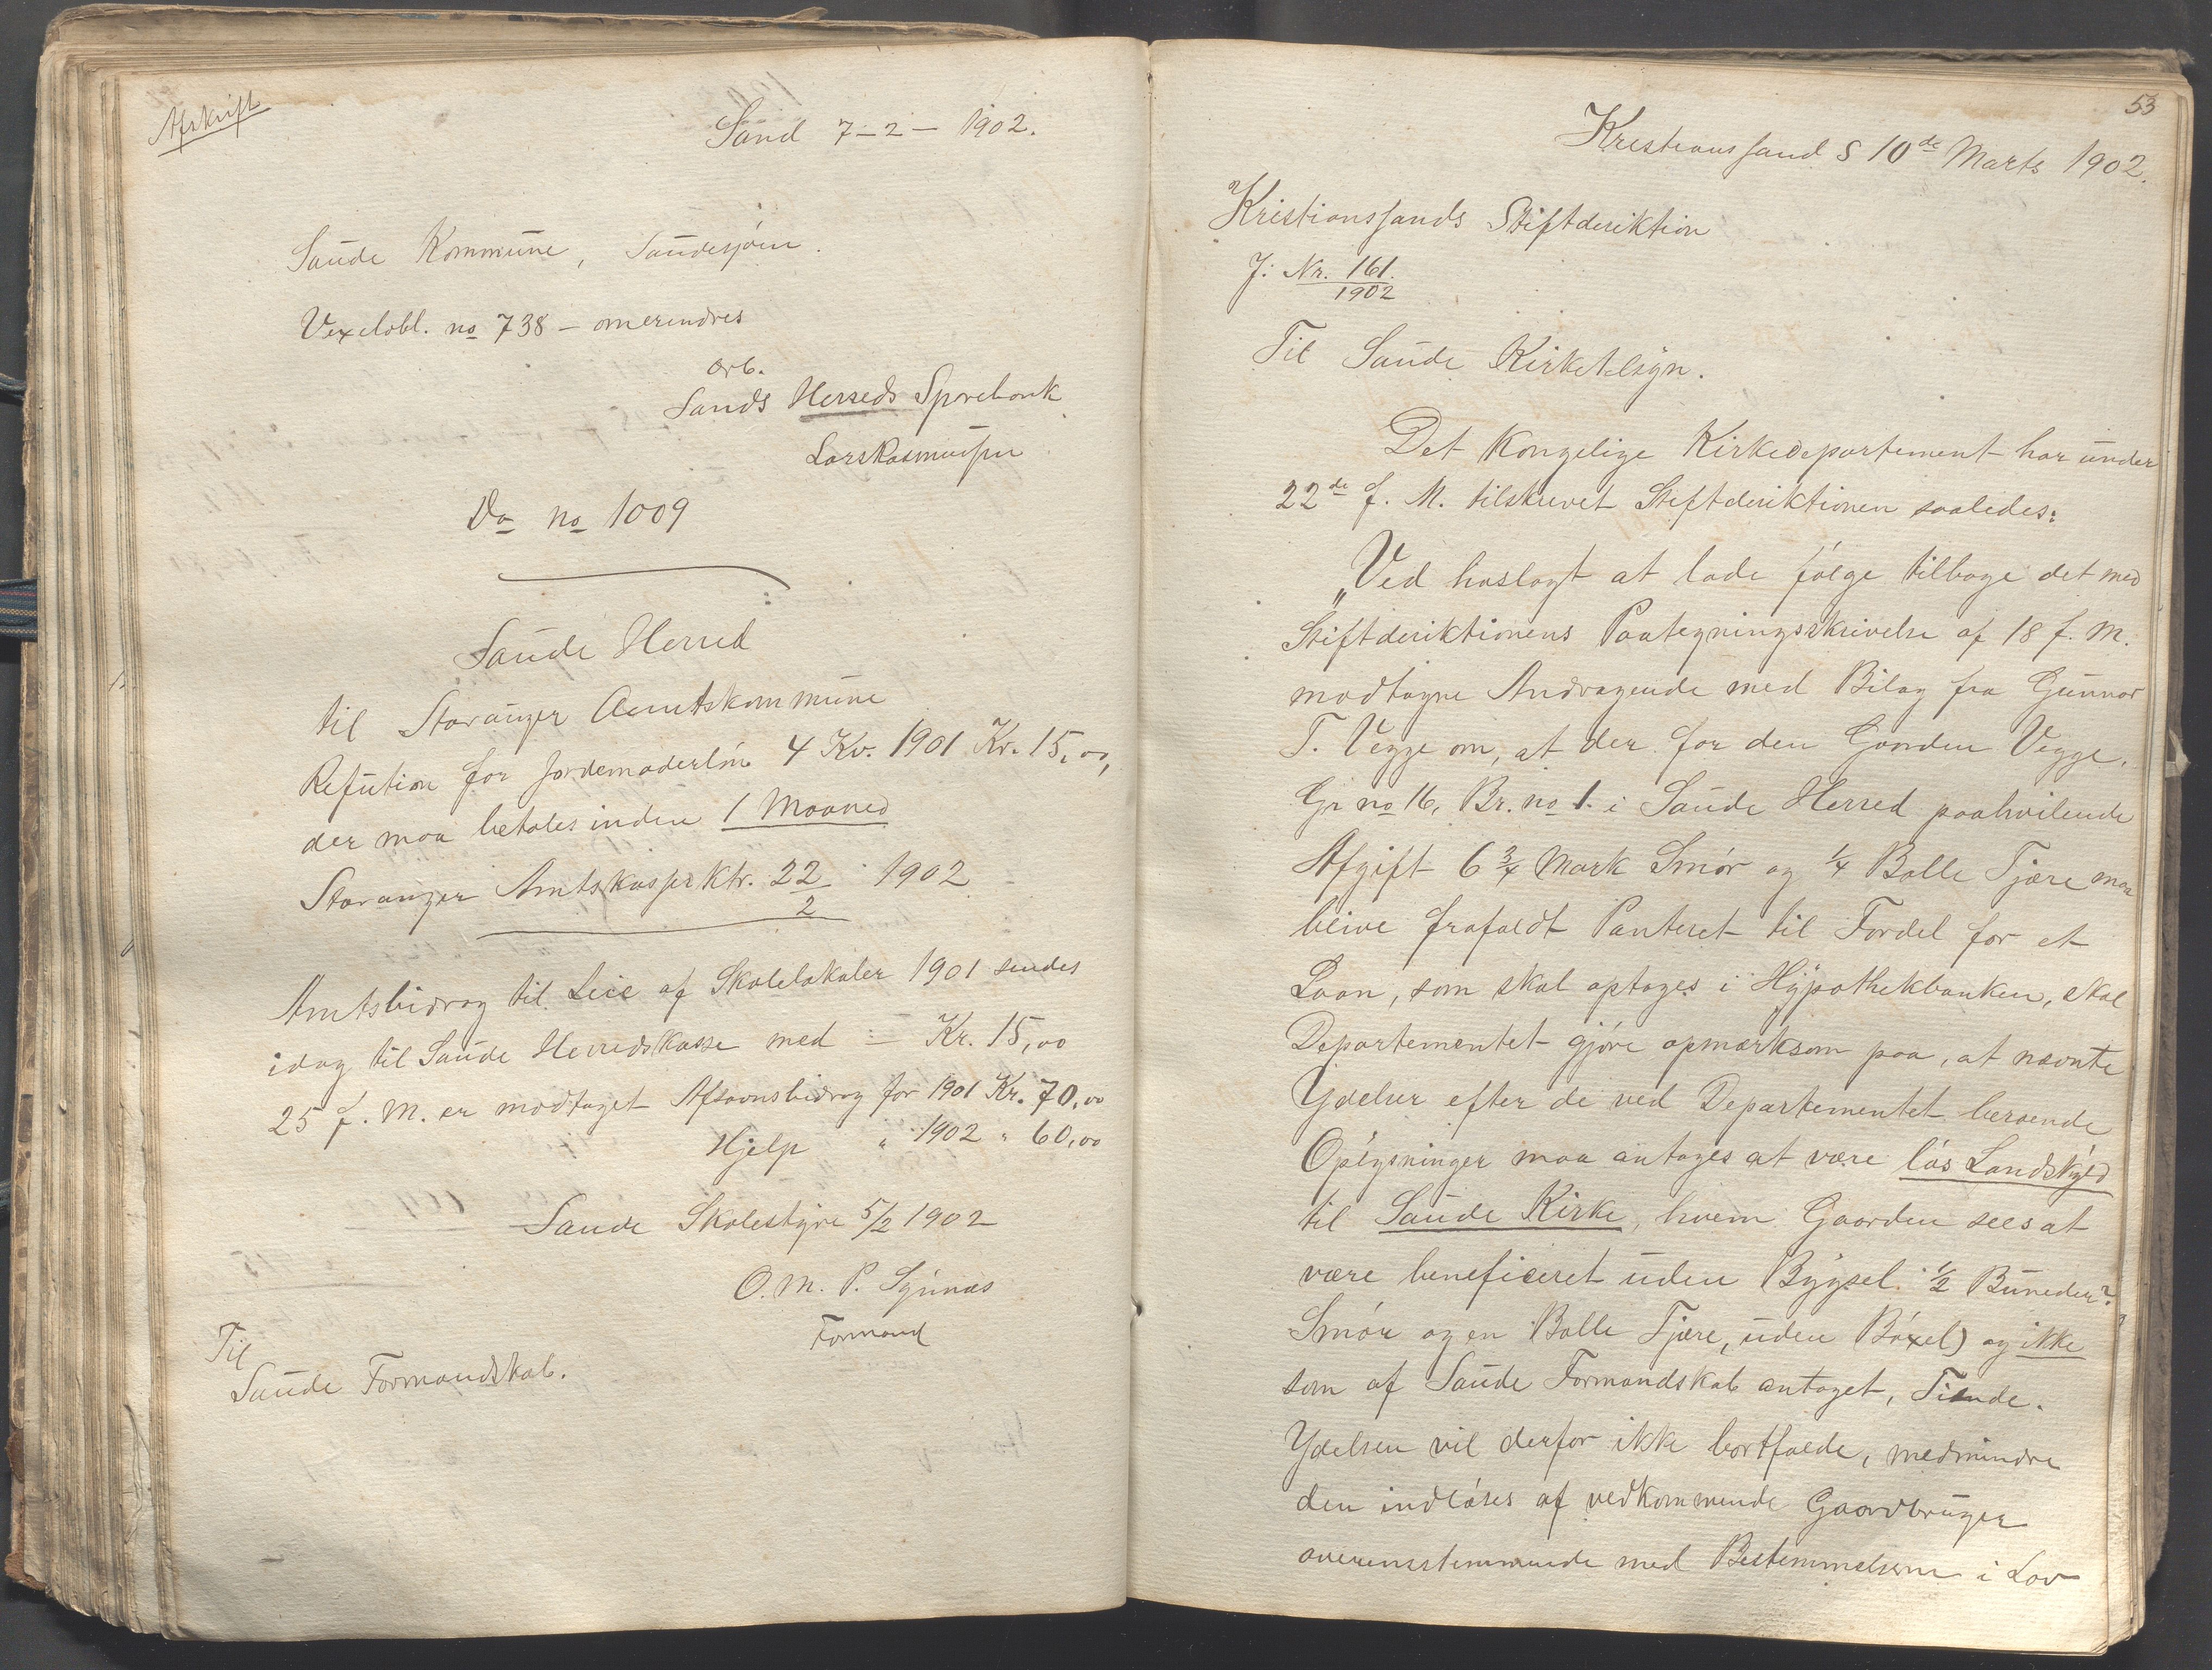 Afskrift
Sand 7-2-1902.
Saude Kommune, Saudesjøen.
Vexelobl. no 738 - omerindres
Ærb.
Sands Herreds Sparebank
Lars Rasmussen
Do no 1009
Saude Herred
til Stavanger Amtskommune
Refution for Jordemoderløn 4 Kv. 1901 Kr. 15,00,
der maa betales inden 1 Maaned
Stavanger Amtskasserktr. 22/2 1902
Amtsbidrag til Leie af Skolelokaler 1901 sendes
idag til Saude Herredskasse med = Kr. 15,00
25 f. M. er modtaget Aftaarnsbidrag for 1901 Kr. 70,00
Hjelp " 1902 " 60,00
Saude Skolestyre 5/2 1902
O. M. P.
Formand
Til
Saude Formandskab.
53
Kristianssand S 10de Marts 1902.
Kristianssands Stiftderiktion
J: Nr. 161/1902
Til Saude Kirketilsyn.
Det Kongelige Kirkedepartement har under
22de f. M. tilskrevet Stiftderiktionen saaledes:
„Ved hoslagt at lade følge tilbage det med
Stiftderiktionens Paategningsskrivelse af 18 f. M.
modtagne Andragende med Bilag fra Gunnar
T. Vegge om, at der for den Gaarden Vegge,
Gr no 16, Br. no 1. i Saude Herred paahvilende
Afgift 6 3/4 Mark Smør og 1/4 Balle Tjære maa
blive frafaldt Panteret til Fordel for et
Laan, som skal optages i Hypothekbanken, skal
Departementet gjøre opmærksom paa, at nævnte
Ydelser efter de ved Departementet beroende
Oplysninger maa antages at være løs Landskyld
til Saude Kirke, hvem Gaarden sees at
være beneficeret uden Bygsel 1/2 Buneder?
Smør og en Balle Tjære, uden Bøxel) og ikke
som af Saude Formandskab antaget, Tiende.
Ydelsen vil derfor ikke bortfalde, medmindre
den indløses af vedkommende Gaardbruger
overensstemmende med Bestemmelserne i Lov